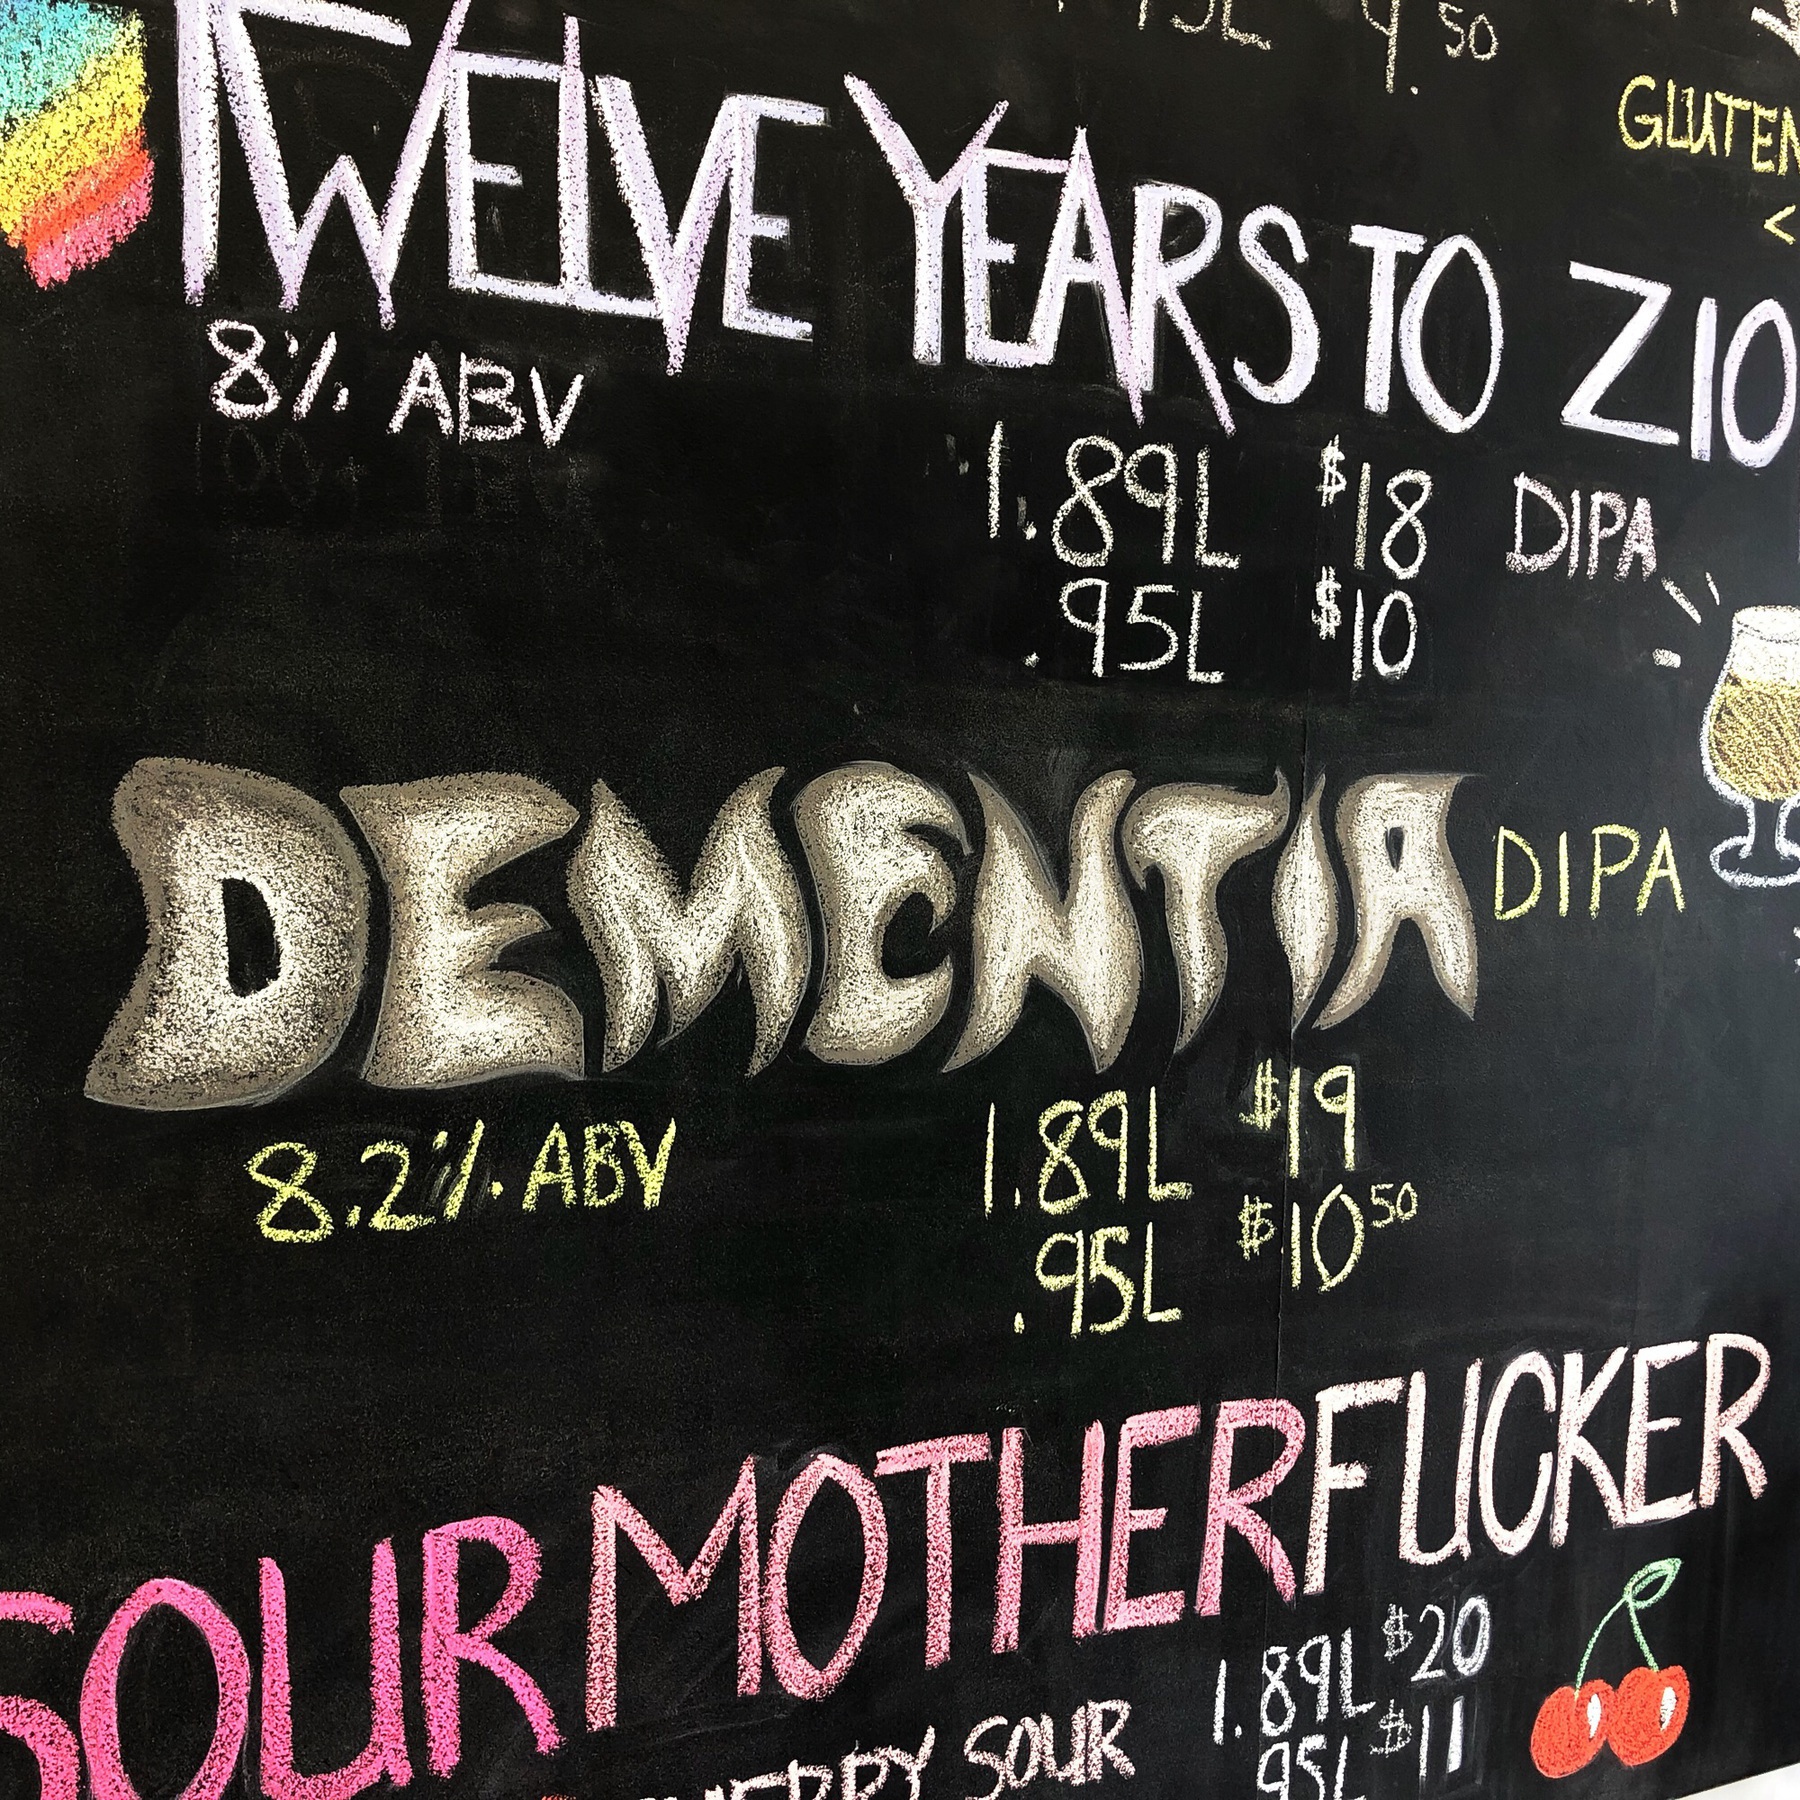 4.50
GLUTEN
<
TWELVE YEARS TO ZIO
8% ABV
1.89L $18 DIPA
.95L $10
DEMENTIA DIPA
8.2% ABV
1.89L $19
.95L $10 50
SOUR MOTHERFUCKER
1.89L $20
SOUR
95L $11